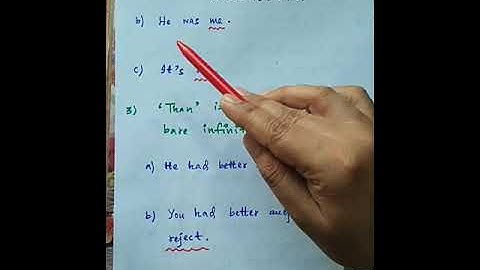 b) He was me.
c) It's
3) 'Than' i
bare infini
a) He had better
b) You had better
reject.